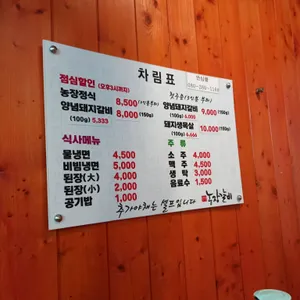 차림표
점심할인 (오후3시까지)
농장정식 8,500
양념돼지갈비 8,000 (150g)
(100g) 5,333
식사메뉴
물냉면 4,500
비빔냉면 5,000
된장(大) 4,000
된장(小) 2,000
공기밥 1,000
양념돼지갈비 9,000 (150g)
(100g) 6,000
돼지생목살 10,000 (150g)
(100g) 6,666
주류
소주 4,000
맥주 4,500
생탁 3,000
음료수 1,500
추가야채는 셀프입니다
농장갈비